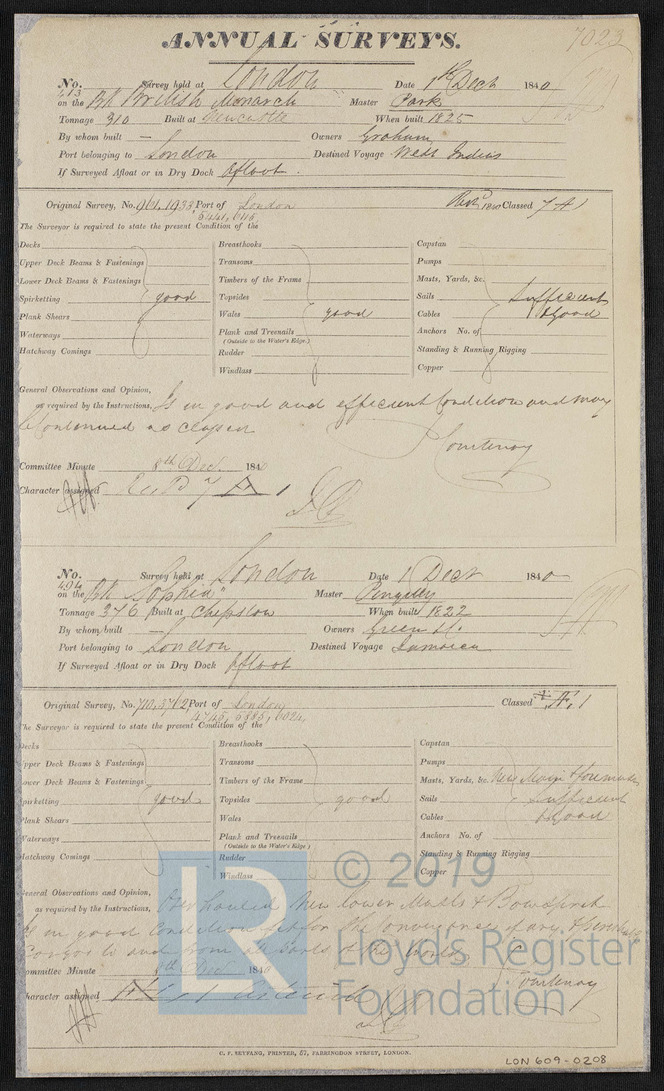 ANNUAL SURVEYS.
7023
No. 493 Survey held at London Date 1st Dect 1840
on the Bk British Monarch Master Parke
Tonnage 310 Built at Newcastle When built 1825
By whom built — Owners Graham
Port belonging to London Destined Voyage West Indies
If Surveyed Afloat or in Dry Dock Afloat.
Original Survey, No. Port of London 1840 Classed 7 A 1
The Surveyor is required to state the present Condition of the
Decks Breasthooks Capstan
Upper Deck Beams & Fastenings Transoms Pumps
Lower Deck Beams & Fastenings Timbers of the Frame Masts, Yards, &c.
Spirketting good Topsides Sails Sufficient
Plank Shears Wales good Cables & good
Waterways Plank and Treenails Anchors No. of
(Outside to the Water's Edge.)
Hatchway Comings Rudder Standing & Running Rigging
Windlass Copper
General Observations and Opinion,
as required by the Instructions, Is in good and efficient Condition and may
be Continued as classed
Courtenay
Committee Minute 8th Dec. 1840
Character assigned 7 A 1
No. 494 Survey held at London Date 1 Dect 1840
on the Bk "Sophia" Master Pengelley
Tonnage 376 Built at Chepstow When built 1822
By whom built — Owners Green
Port belonging to London Destined Voyage Jamaica
If Surveyed Afloat or in Dry Dock Afloat
Original Survey, No. Port of London Classed Æ 1
4745, 5385, 6024,
The Surveyor is required to state the present Condition of the
Decks Breasthooks Capstan
Upper Deck Beams & Fastenings Transoms Pumps
Lower Deck Beams & Fastenings Timbers of the Frame Masts, Yards, &c. New Main & Foremasts
Spirketting good Topsides good Sails Sufficient
Plank Shears Wales Cables & good
Waterways Plank and Treenails Anchors No. of
(Outside to the Water's Edge.)
Hatchway Comings Rudder Standing & Running Rigging
Windlass Copper
General Observations and Opinion,
as required by the Instructions, Over hauled New lower Masts & Bowsprit
Is in good Condition fit for the Conveyance of dry &
Cargos to and from all parts of the world
Committee Minute 8th Dec 1840 Courtenay
Character assigned Æ 1
C. F. SEYFANG, PRINTER, 57, FARRINGDON STREET, LONDON.
LON 609-0208
LR © 2019
Lloyd's Register
Foundation